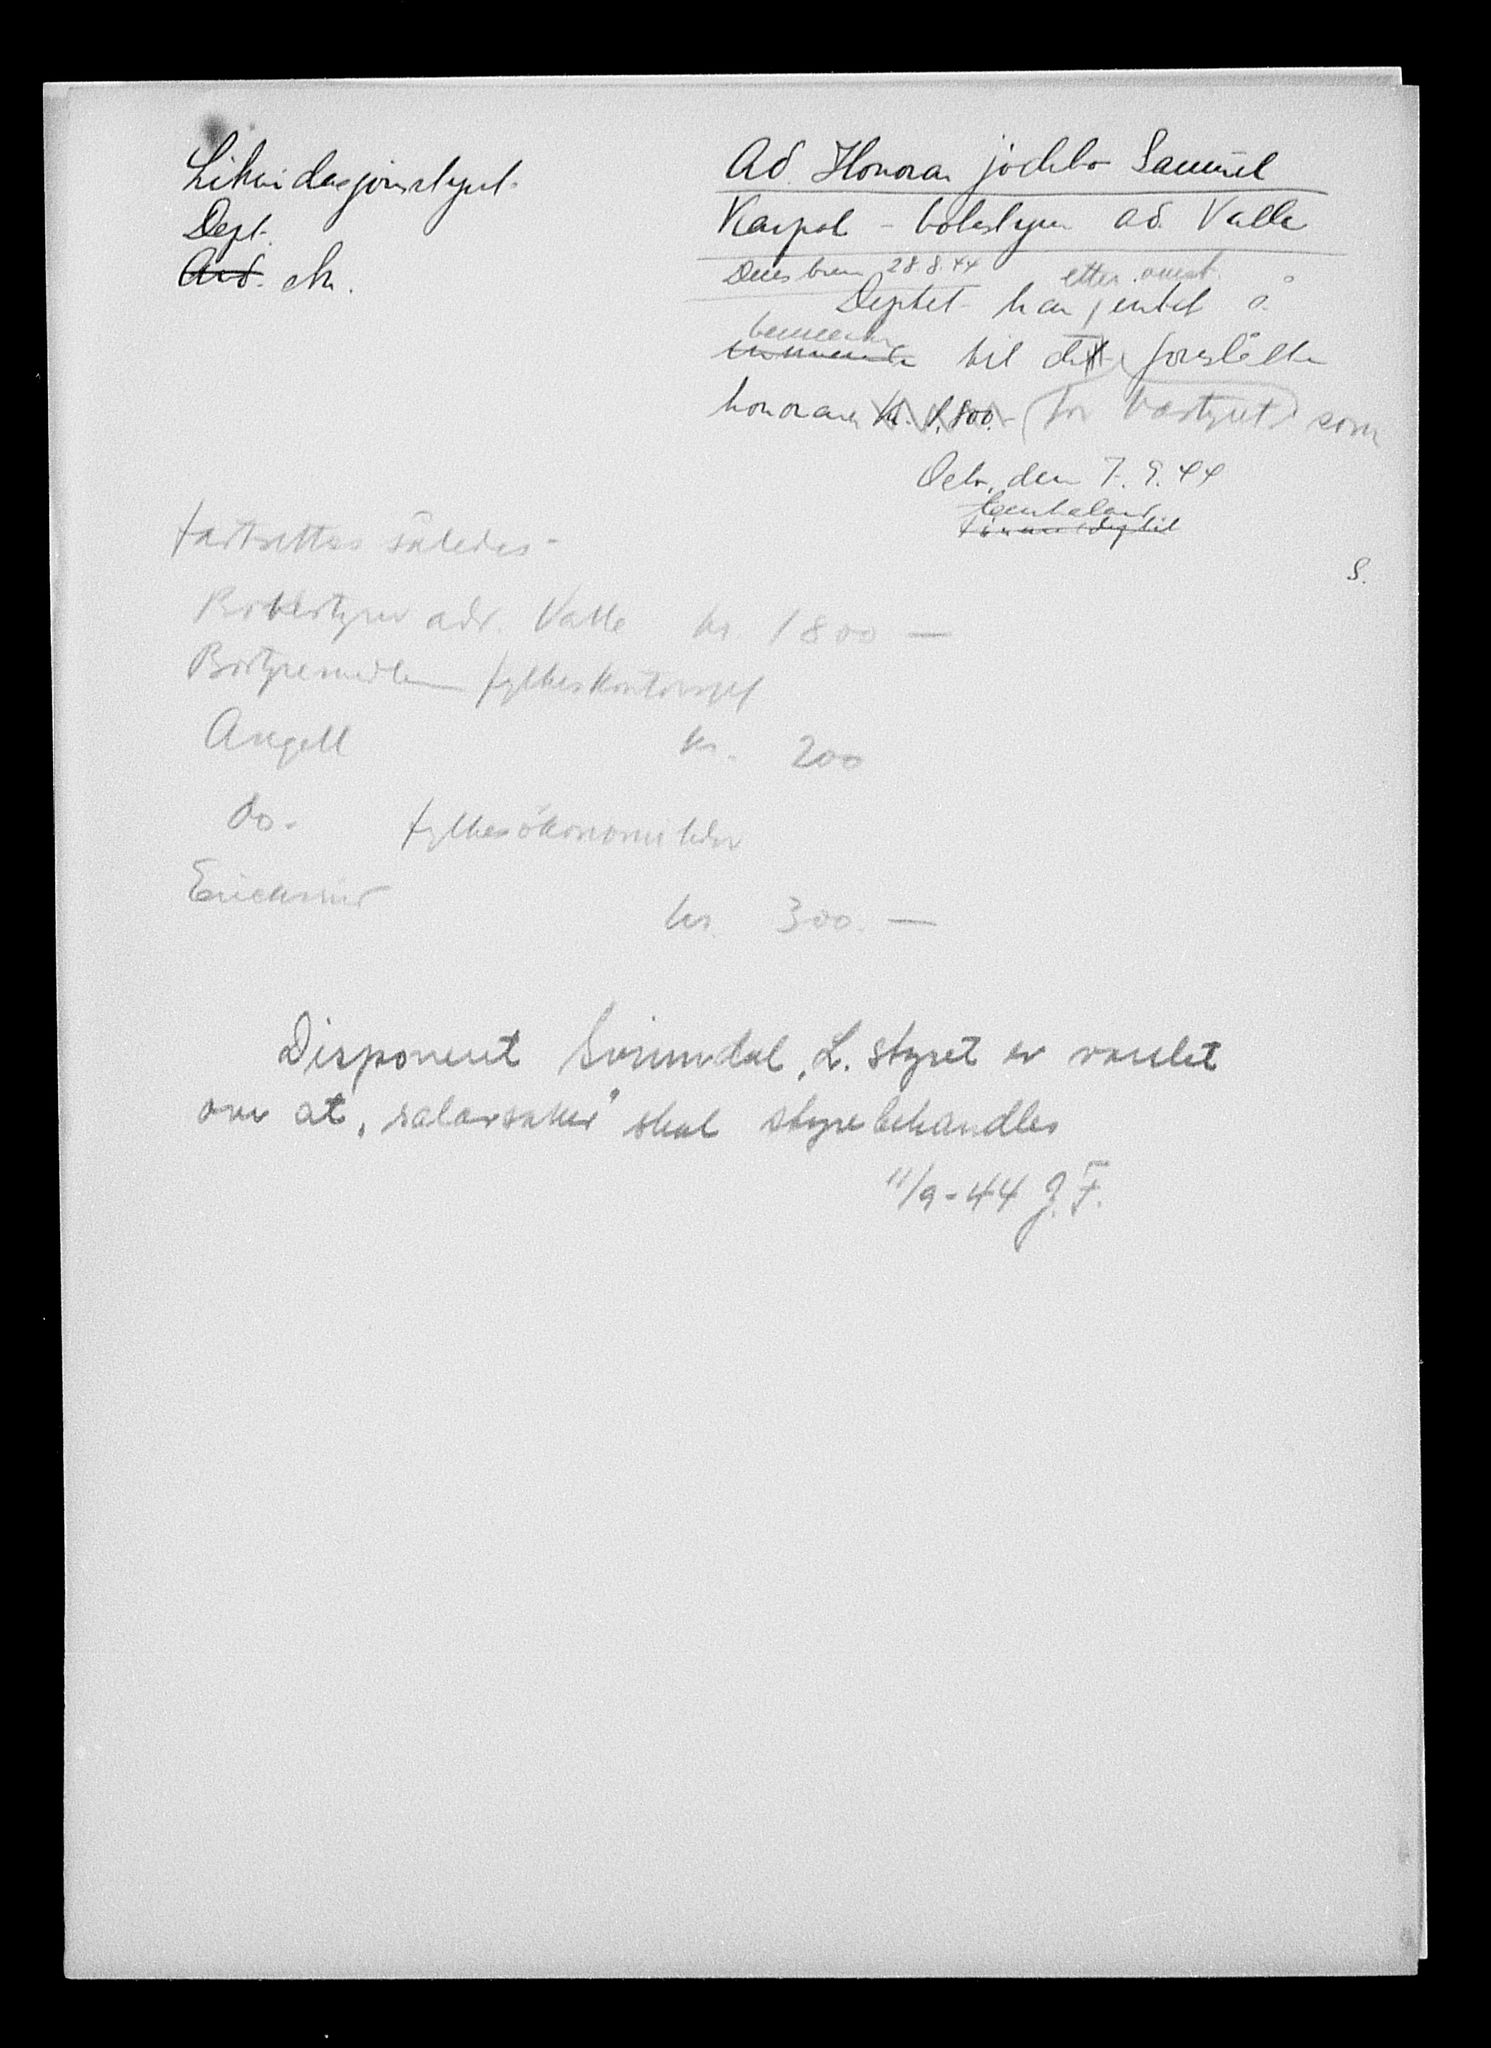 Likvidasjonsstyret.
Dept.
And. ek.
Ad. Honorar jødebo Samuel
Karpol - bobestyrer ad. Valle
Deres brev 28.8.44
etter omst.
Deptet har intet å
bemerke
til det foreslåtte
honorar kr. 1.800.- for bostyret som
Oslo, den 7.9.44
S.
fastsettes således -
Bobestyrer adv. Valle kr. 1800 —
Bostyremedlem fylkeskontorsjef
Angell kr. 200
do. fylkesøkonomileder
kr. 300. —
Disponent Svinndal, L. styret er varslet
om at „salærsaker" skal styrebehandles
11/9-44 J.F.